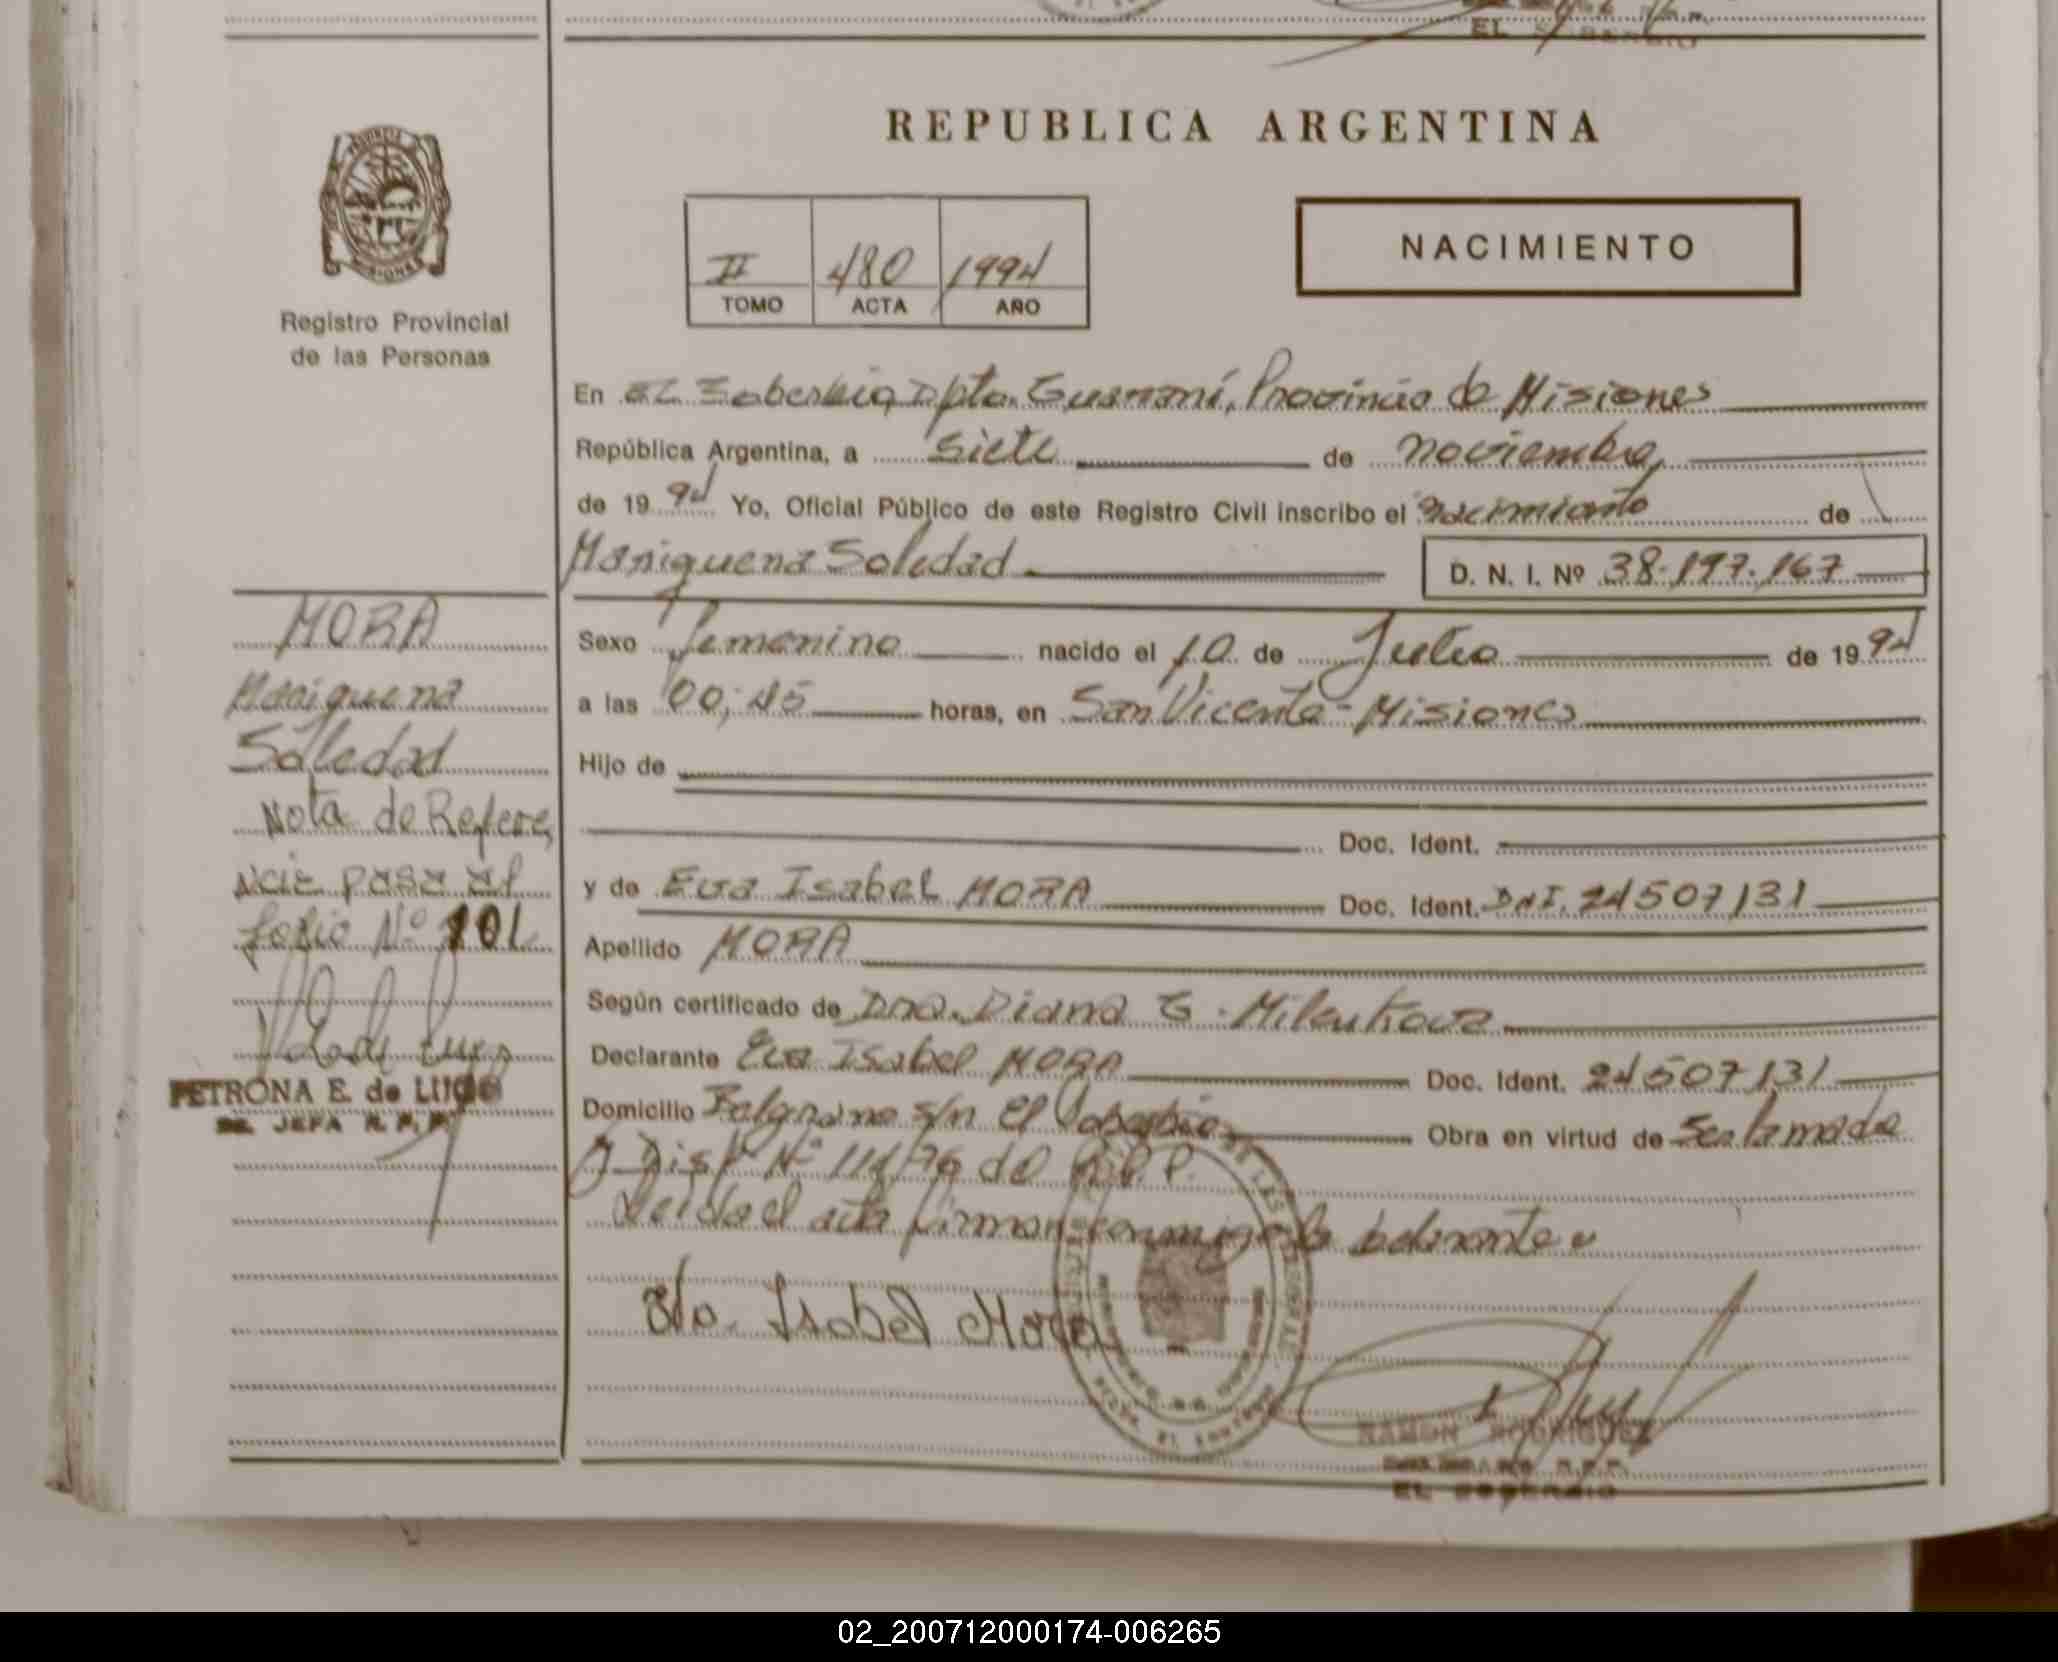 EL SOBERBIO
REPUBLICA ARGENTINA
NACIMIENTO
II 480 1994
TOMO ACTA AÑO
PROVINCIA MISIONES
Registro Provincial
de las Personas
En EL Soberbio, Dpto. Guaraní, Provincia de Misiones
República Argentina, a siete de noviembre
de 1994 Yo, Oficial Público de este Registro Civil inscribo el nacimiento de
Mariquena Soledad D. N. I. Nº 38.197.167
Sexo femenino nacido el 10 de Julio de 1994
a las 00,45 horas, en San Vicente - Misiones
Hijo de
Doc. Ident.
y de Eva Isabel MORA Doc. Ident. DNI. 24507131
Apellido MORA
Según certificado de Dra. Diana G.
Declarante Eva Isabel MORA Doc. Ident. 24507131
Domicilio Belgrano s/n El Soberbio Obra en virtud de
Disp. Nº 111/76 del R.P.P.
Leida el acta firman conmigo la declarante
Isabel Mora
RAMON RODRIGUEZ
R.P.P.
EL SOBERBIO
MORA
Mariquena
Soledad
Nota de Refere,
ncia pasa al
folio Nº 101
PETRONA E. de LUGO
JEFA R.P.P.
02_200712000174-006265